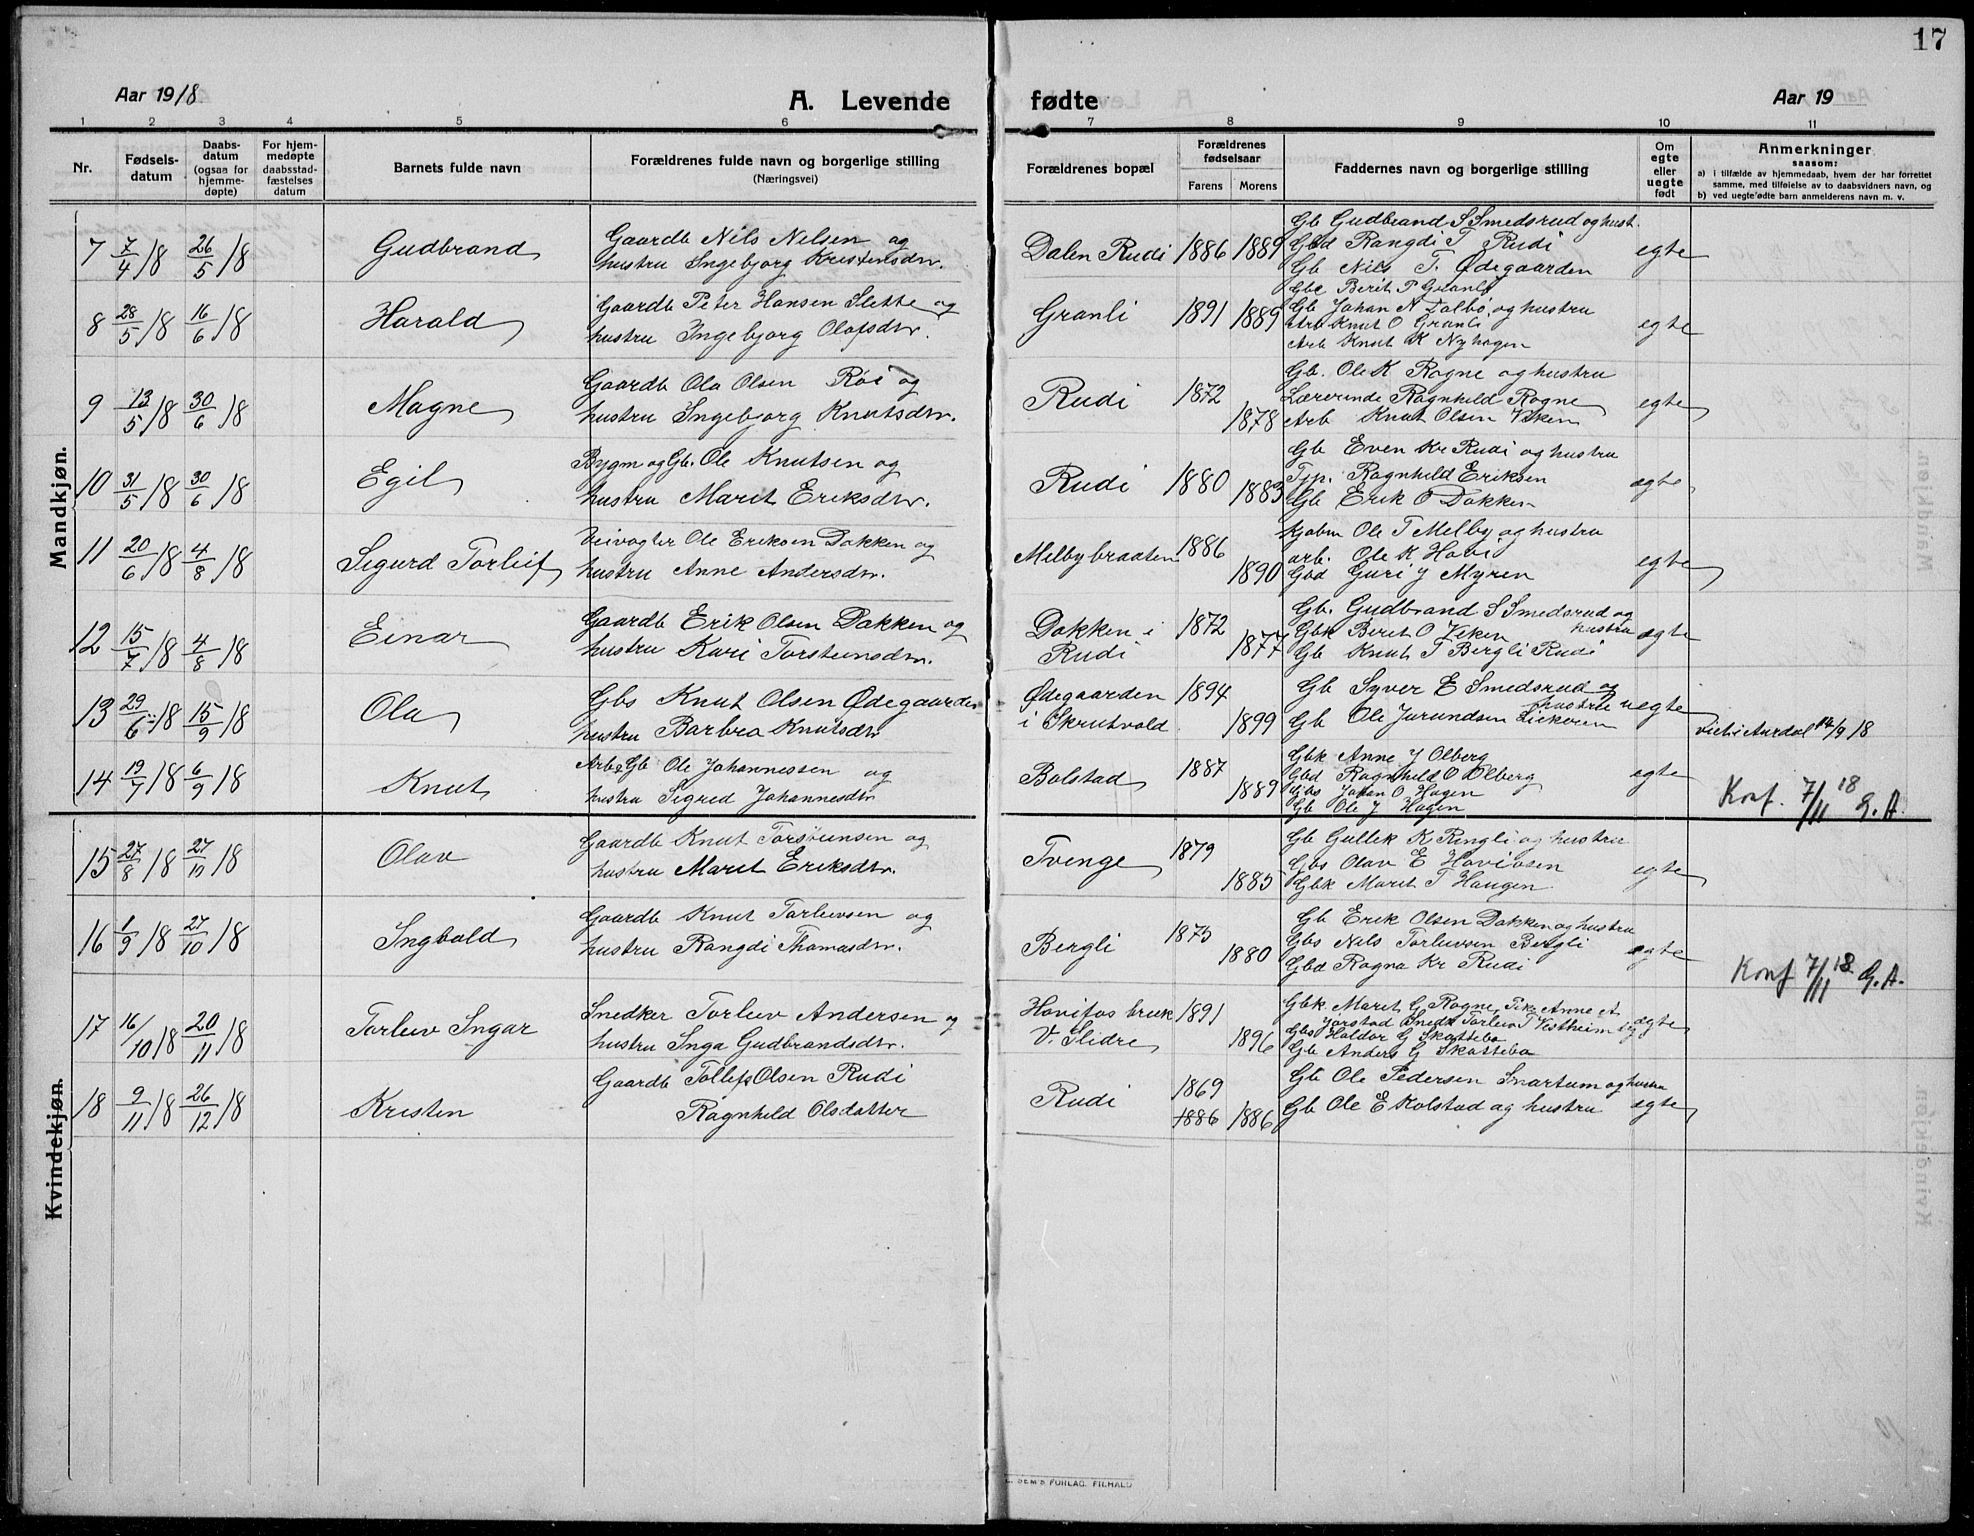 17
Aar 1918
A. Levende fødte
Aar 19
1 2 3 4 5 6 7 8 9 10 11
Nr.
Fødsels-
datum
Daabs-
datum
(ogsaa for
hjemme-
døpte)
For hjem-
medøpte
daabsstad-
fæstelses
datum
Barnets fulde navn
Forældrenes fulde navn og borgerlige stilling
(Næringsvei)
Forældrenes bopæl
Forældrenes
fødselsaar
Farens Morens
Faddernes navn og borgerlige stilling
Om
egte
eller
uegte
født
Anmerkninger
saasom:
a) i tilfælde av hjemmedaab, hvem der har forrettet
samme, med tilføielse av to daabsvidners navn, og
b) ved uegte fødte barn anmelderens navn m. v.
Mandkjøn.
7 7/4 18 26/5 18 Gudbrand
Gaardb Nils Nilsen og
hustru Ingebjorg Kristensdtr.
Dalen Rudi 1886 1889
Gb Gudbrand S Smedsrud og hust.
Gbd Rangdi T Rudi
Gb Nils T. Ødegaarden
egte
8 28/5 18 16/6 18 Harald
Gaardb Peter Hansen Slette og
hustru Ingebjorg Olafsdtr.
Granli 1891 1889
Gbe Berit P Granli
Gb Johan N Dalbø og hustru
Arb Knut O Granli
Arb Knut K Nyhagen
egte
9 13/5 18 30/6 18 Magne
Gaardb Ola Olsen Røe og
hustru Ingebjorg Knutsdtr.
Rudi 1872 1878
Gb. Ole K Rogne og hustru
Lærerinde Ragnhild Rogne
Arb Knut Olsen Viken
egte
10 31/5 18 30/6 18 Egil
Bygm og Gb. Ole Knutsen og
hustru Marit Eriksdtr.
Rudi 1880 1883
Gb Even Kr Rudi og hustru
Tjp. Ragnhild Eriksen
Gb Erik O Dokken
egte
11 20/6 18 4/8 18 Sigurd Torleif
Veivogter Ole Eriksen Dokken og
hustru Anne Andersdtr.
Melbybraaten 1886 1890
Kjøbm Ole T Melby og hustru
arb. Ole K Hovi
Gbd Guri J Myren
egte
12 15/7 18 4/8 18 Einar
Gaardb Erik Olsen Dokken og
hustru Kari Torsteinsdtr.
Dokken i
Rudi 1872 1877
Gb. Gudbrand S Smedsrud og
hustru
Gbk Berit O Viken
Gb Knut T Bergli Rudi
egte
13 29/6 18 15/9 18 Ola
Gbs Knut Olsen Ødegaarden
hustru Barbra Knutsdtr
Ødegaarden
i Skrutvold 1894 1899
Gb Syver E Smedsrud og
hustru
Gb Ole Jurundsen
uegte
viet i Aurdal 14/9 18
14 19/7 18 6/9 18 Knut
Arb & Gb Ole Johannessen og
hustru Sigrid Johannesdtr
Bolstad 1887 1889
Gbk Anne J Olberg
Gbd Ragnhild O Olberg
Gbs Johan O Hagen
Gb Ole J Hagen
egte
Konf. 7/11 18 G. A.
Kvindekjøn.
15 27/8 18 27/10 18 Olav
Gaardb Knut Torsteinsen og
hustru Marit Eriksdtr.
Tvenge 1879 1885
Gb Gullik K Ringli og hustru
Gbs Olav E
Gbk Marit T Haugen
egte
16 1/9 18 27/10 18 Ingvald
Gaardb Knut Torleivsen og
hustru Rangdi Thomasdtr.
Bergli 1875 1880
Gb Erik Olsen Dokken og hustru
Gbs Nils Torleivsen Bergli
Gbd Ragna Kr Rudi
egte
Konf 7/11 18 G. A.
17 16/10 18 20/11 18 Torleiv Ingar
Snedker Torleiv Andersen og
hustru Inga Gudbrandsdtr.
Hovifos bruk
V. Slidre 1891 1896
Gbk. Marit G Rogne, Pike Anne A
Jorstad Snedk Torleiv T Vestheim
Gbs Haldor G Skattebo
Gb Anders G Skattebo
egte
18 9/11 18 26/12 18 Kristen
Gaardb Tollef Olsen Rudi
Ragnhild Olsdatter
Rudi 1869 1886 1886
Gb Ole Pedersen Snartum og hustru
Gb Ole E Kolstad og hustru
egte
SEM'S FORLAG. FR.HALD